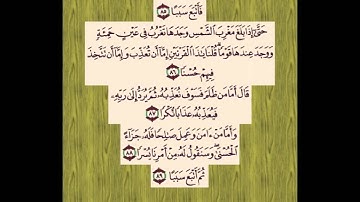 فَأَتْبَعَ سَبَبًا ٨٥
حَتَّىٰ إِذَا بَلَغَ مَغْرِبَ ٱلشَّمْسِ وَجَدَهَا تَغْرُبُ فِى عَيْنٍ حَمِئَةٍ
وَوَجَدَ عِندَهَا قَوْمًا ۗ قُلْنَا يَٰذَا ٱلْقَرْنَيْنِ إِمَّآ أَن تُعَذِّبَ وَإِمَّآ أَن تَتَّخِذَ
فِيهِمْ حُسْنًا ٨٦
قَالَ أَمَّا مَن ظَلَمَ فَسَوْفَ نُعَذِّبُهُۥ ثُمَّ يُرَدُّ إِلَىٰ رَبِّهِۦ
فَيُعَذِّبُهُۥ عَذَابًا نُّكْرًا ٨٧
وَأَمَّا مَنْ ءَامَنَ وَعَمِلَ صَٰلِحًا فَلَهُۥ جَزَآءً
ٱلْحُسْنَىٰ ۖ وَسَنَقُولُ لَهُۥ مِنْ أَمْرِنَا يُسْرًا ٨٨
ثُمَّ أَتْبَعَ سَبَبًا ٨٩